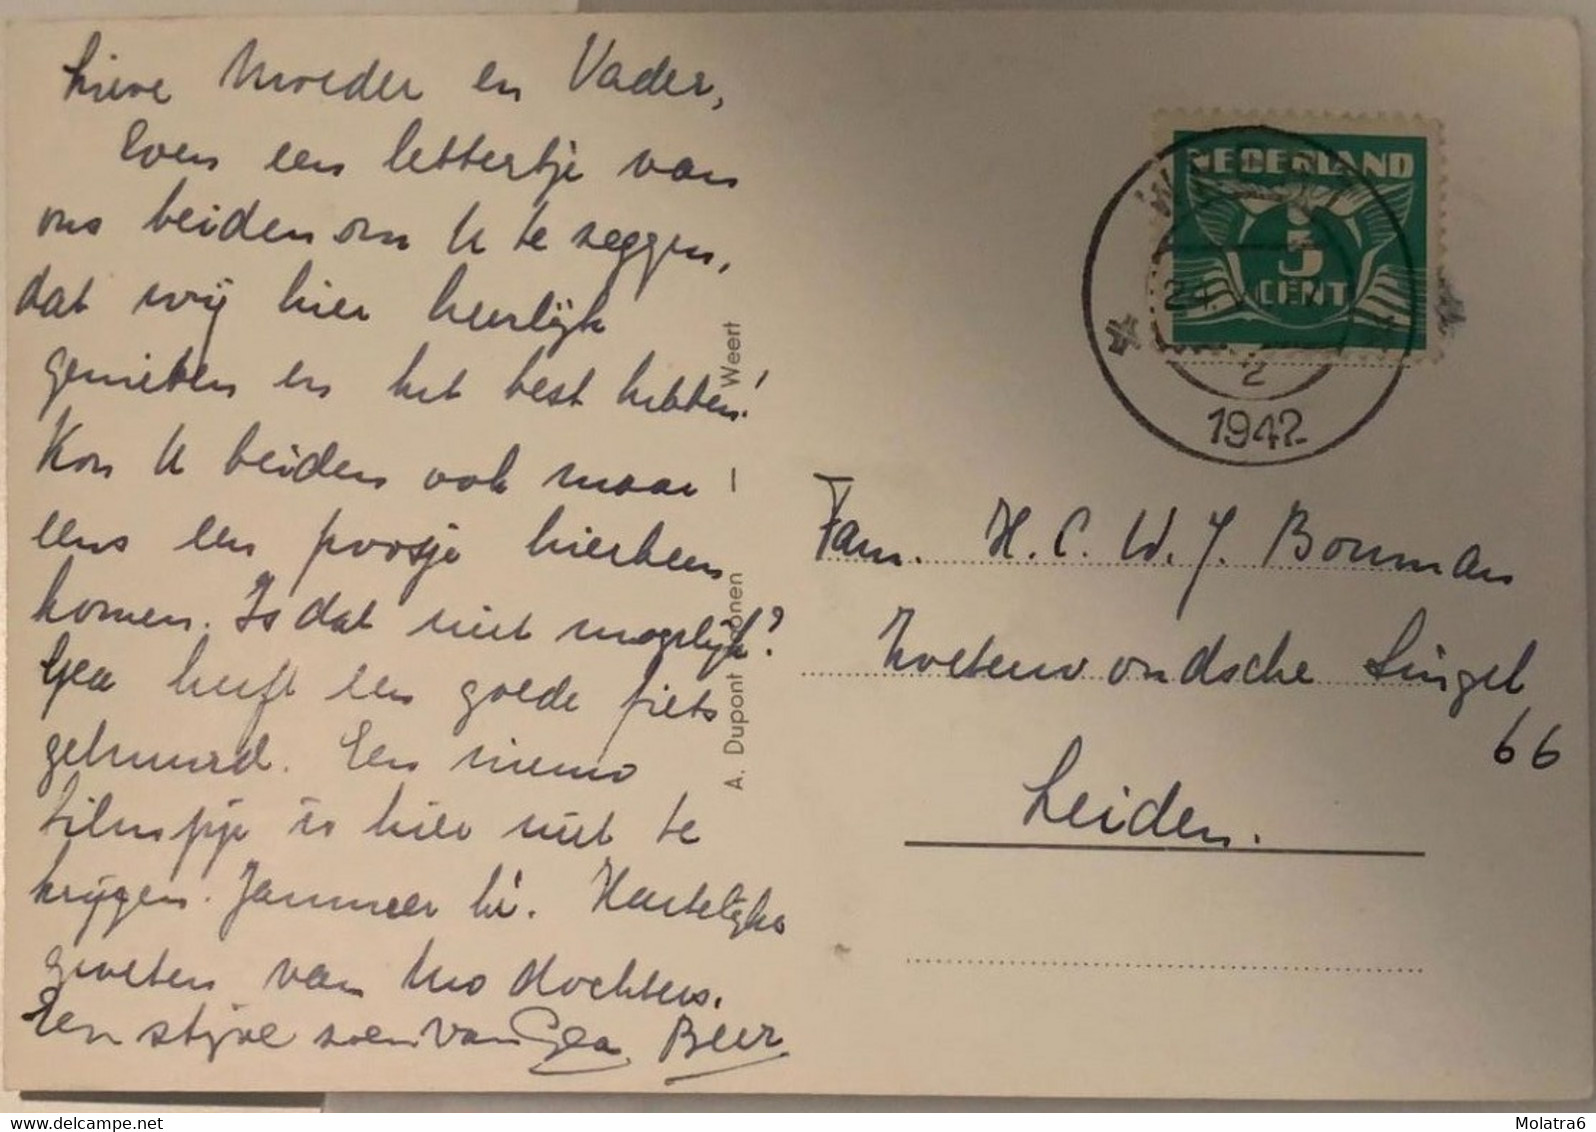 Lieve Moeder en Vader,
Even een lettertje van
ons beiden om U te zeggen,
dat wij hier heerlijk
genieten en het best hebben!
Kon U beiden ook maar
eens een poosje hierheen
komen. Is dat niet mogelijk?
Gea heeft een goede fiets
gehuurd. Een nieuw
filmpje is hier niet te
krijgen. Jammer hè. Hartelijke
groeten van Uw dochters.
Een stijve zoen van Gea. Beer
A. Dupont - Weert
NEDERLAND
5
CENT
WEERT
24
2
1942
Fam. H. C. W. J. Bouman
Zoeterwoudsche Singel
66
Leiden.
www.delcampe.net
Molatra6